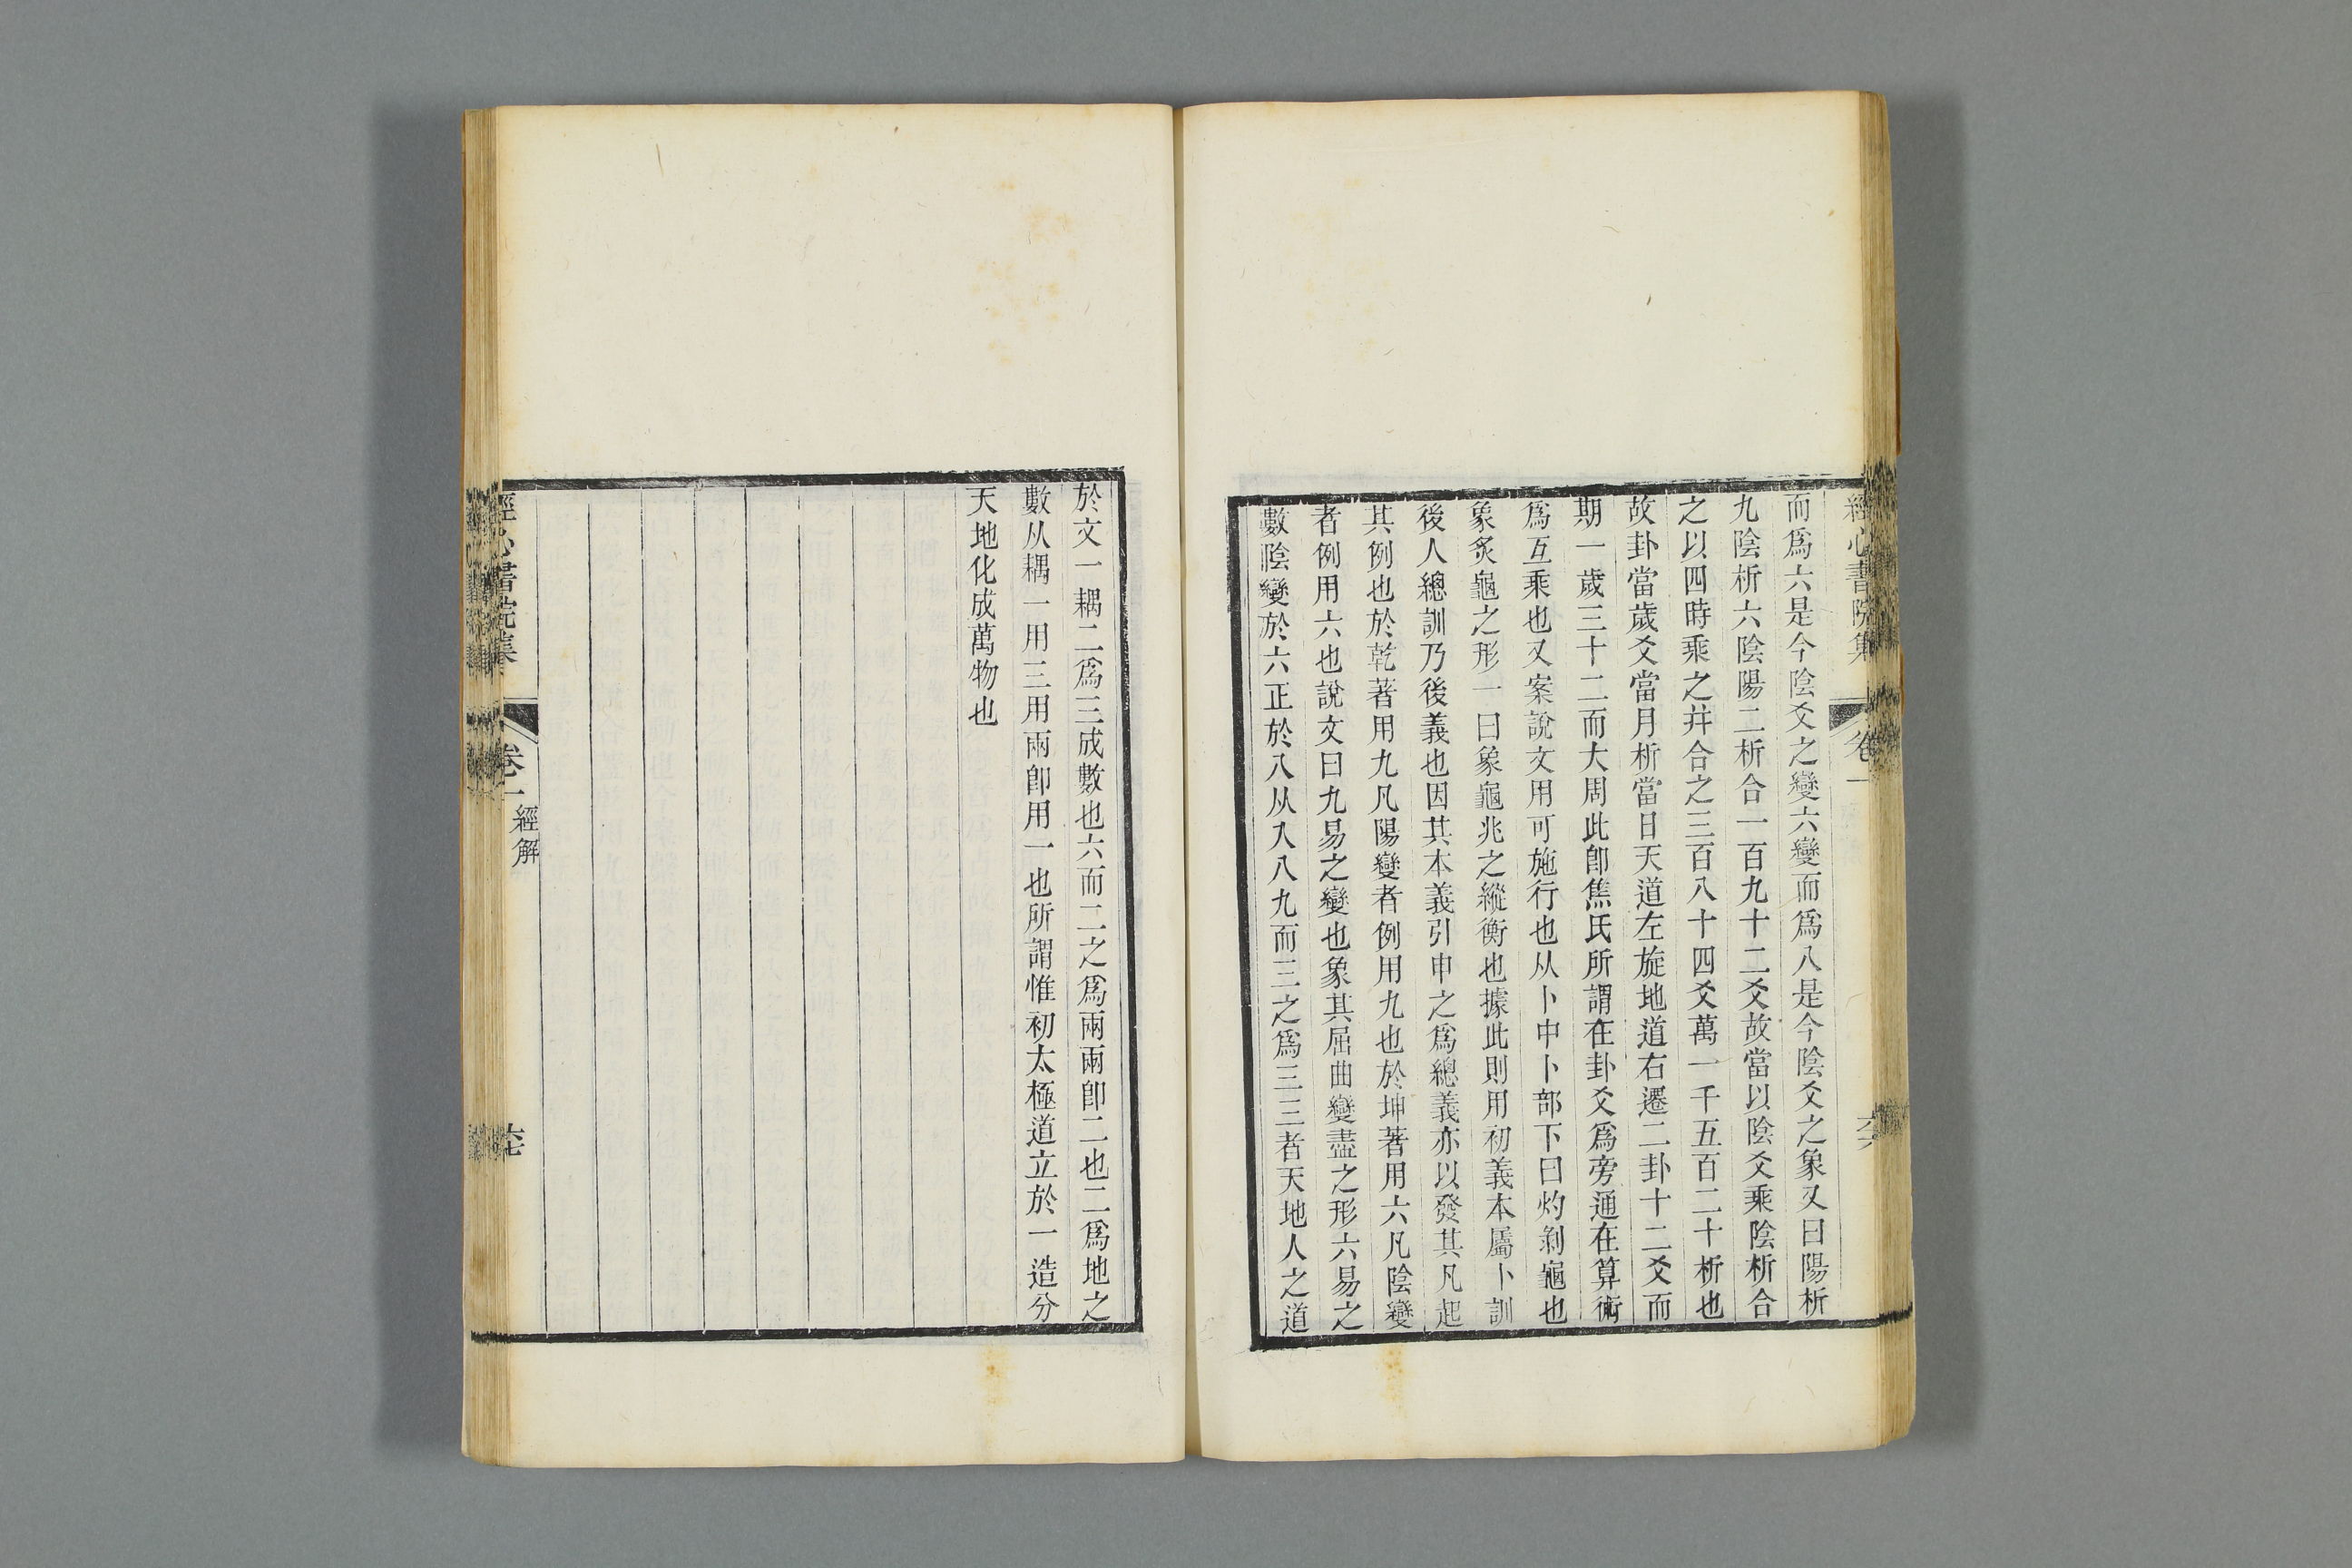 經心書院集
卷一
六六
而爲六是今陰爻之變六變而爲八是今陰爻之象又曰陽析
九陰析六陰陽二析合一百九十二爻故當以陰爻乘陰析合
之以四時乘之并合之三百八十四爻萬一千五百二十析也
故卦當歲爻當月析當日天道左旋地道右遷二卦十二爻而
期一歲三十二而大周此卽焦氏所謂在卦爻爲旁通在算術
爲互乘也又案說文用可施行也从卜中卜部下曰灼剝龜也
象炙龜之形一曰象龜兆之縱衡也據此則用初義本屬卜訓
後人總訓乃後義也因其本義引申之爲總義亦以發其凡起
其例也於乾著用九凡陽變者例用九也於坤著用六凡陰變
者例用六也說文曰九易之變也象其屈曲變盡之形六易之
數陰變於六正於八从入八九而三之爲三三者天地人之道
於文一耦二爲三成數也六而二之爲兩兩卽二也二爲地之
數从耦一用三用兩卽用一也所謂惟初太極道立於一造分
天地化成萬物也
經心書院集
卷一
經解
六七